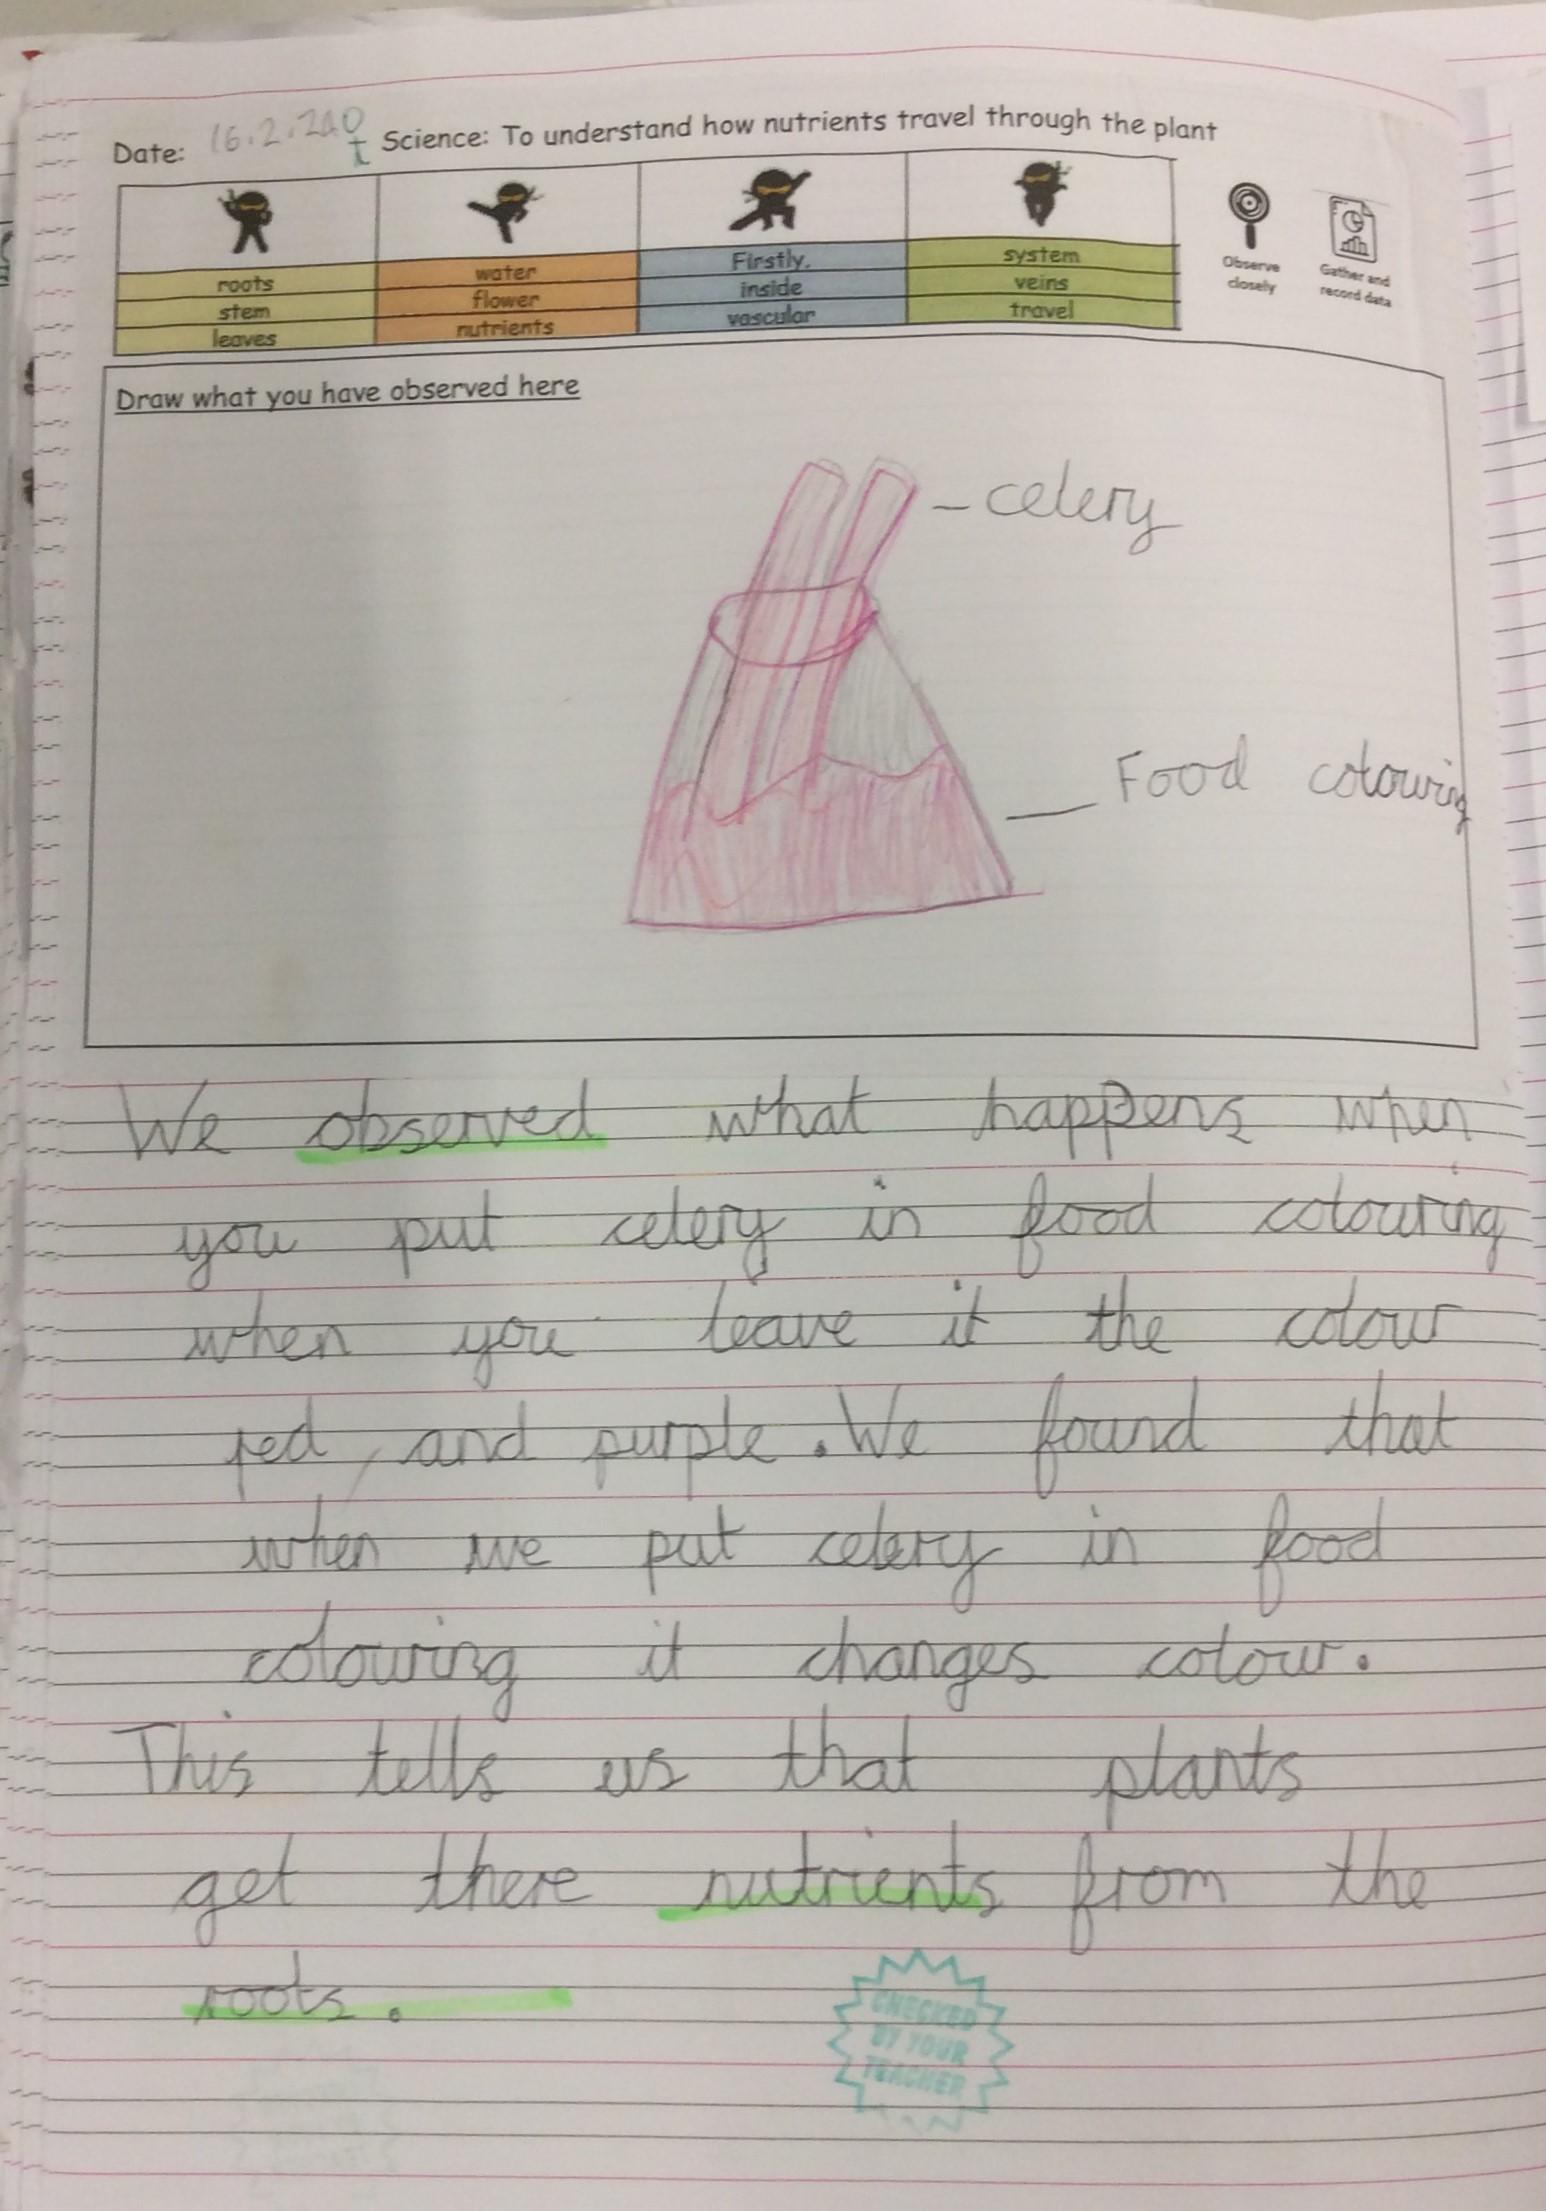 Date: 16.2.2
Science: To understand how nutrients travel through the plant
roots
stem
leaves
water
flower
nutrients
Firstly,
inside
vascular
system
veins
travel
Observe
closely
Gather and
record data
Draw what you have observed here
celery
Food colouring
We observed what happens when
you put celery in food colouring
when you leave it the colour
red, and purple. We found that
when we put celery in food
colouring it changes colour.
This tells us that plants
get there nutrients from the
roots.
CHECKED
BY YOUR
TEACHER